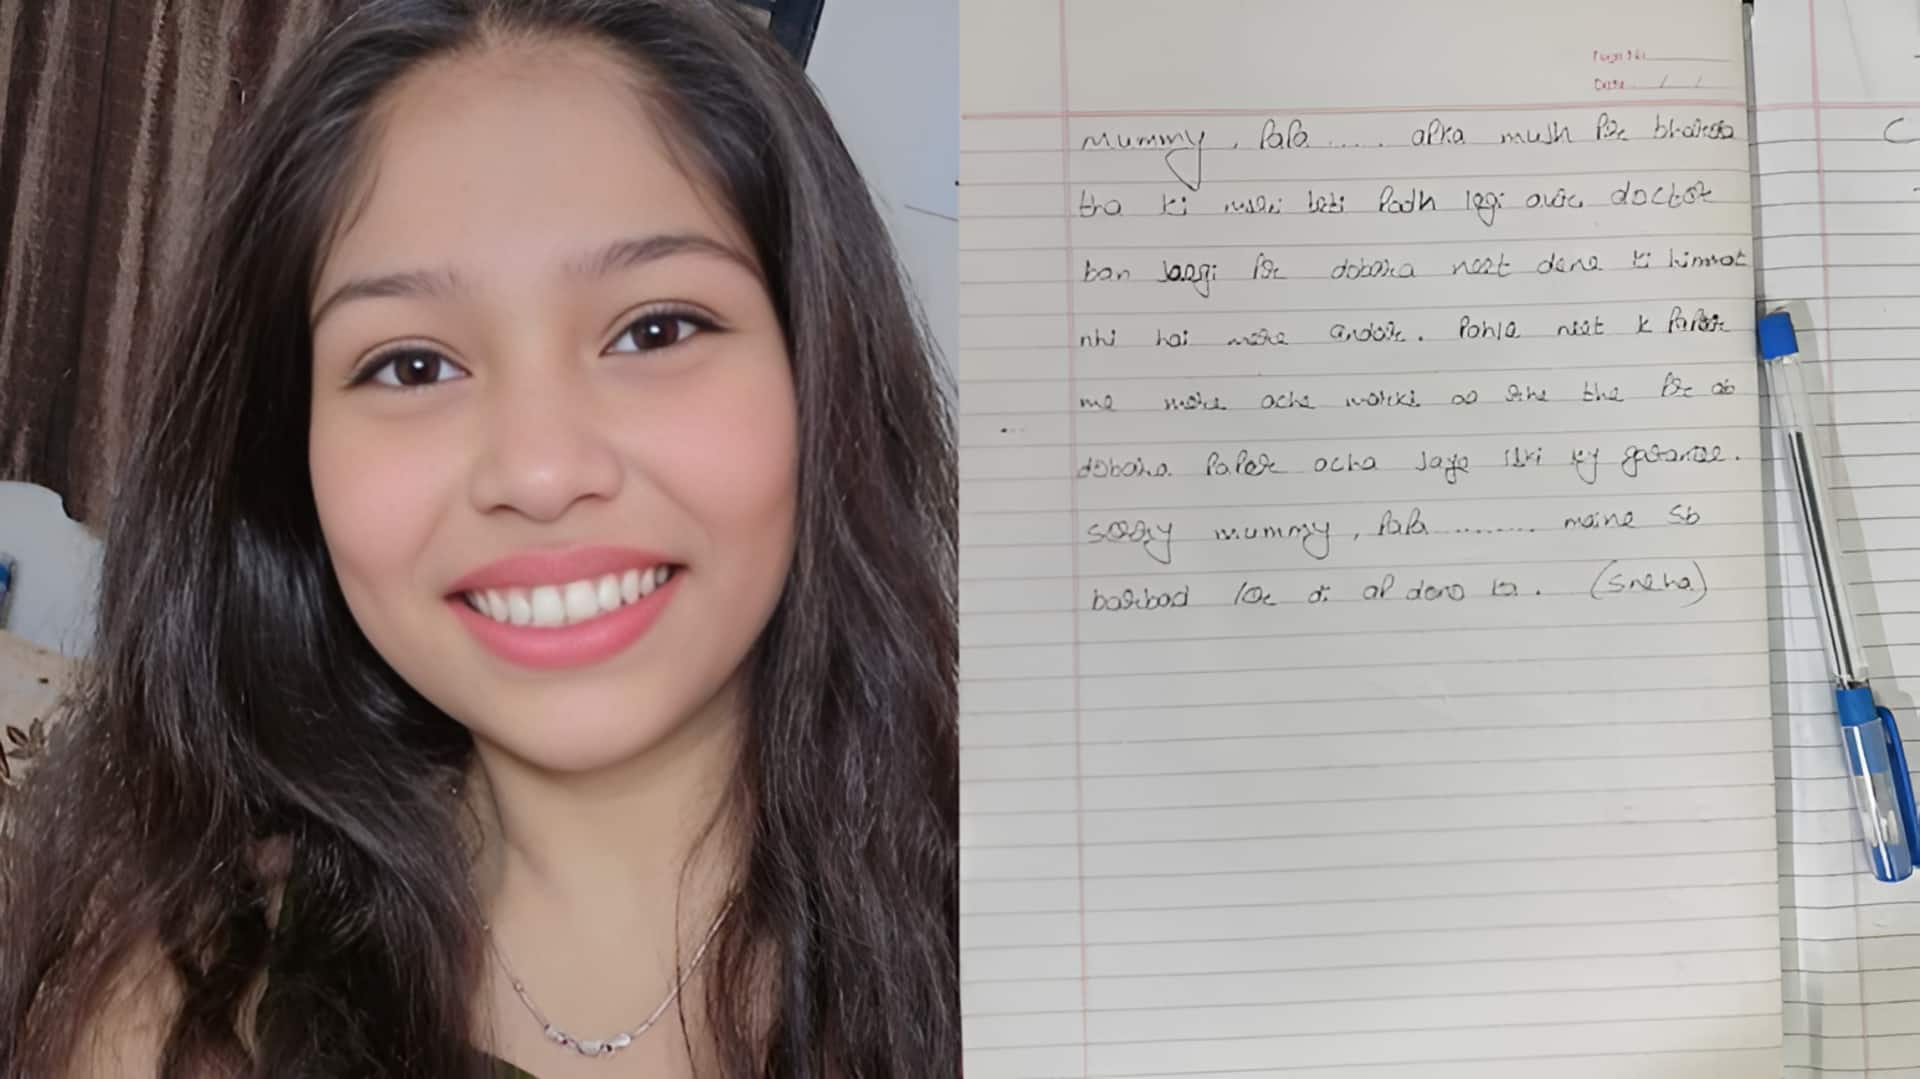 Page No.
Date / /
Mummy, Papa ..... apka mujh par bharosa
tha ki meri beti Padh legi aur doctor
ban jaegi par dobara neet dene ki himmat
nhi hai mere andar. Pahle neet k PaPer
me mere ache marks aa rhe the Par ab
dobara PaPer acha jaye iski ky garantee.
sorry mummy, PaPa ......... maine sb
barbad kar di ap dono ka. (Sneha)